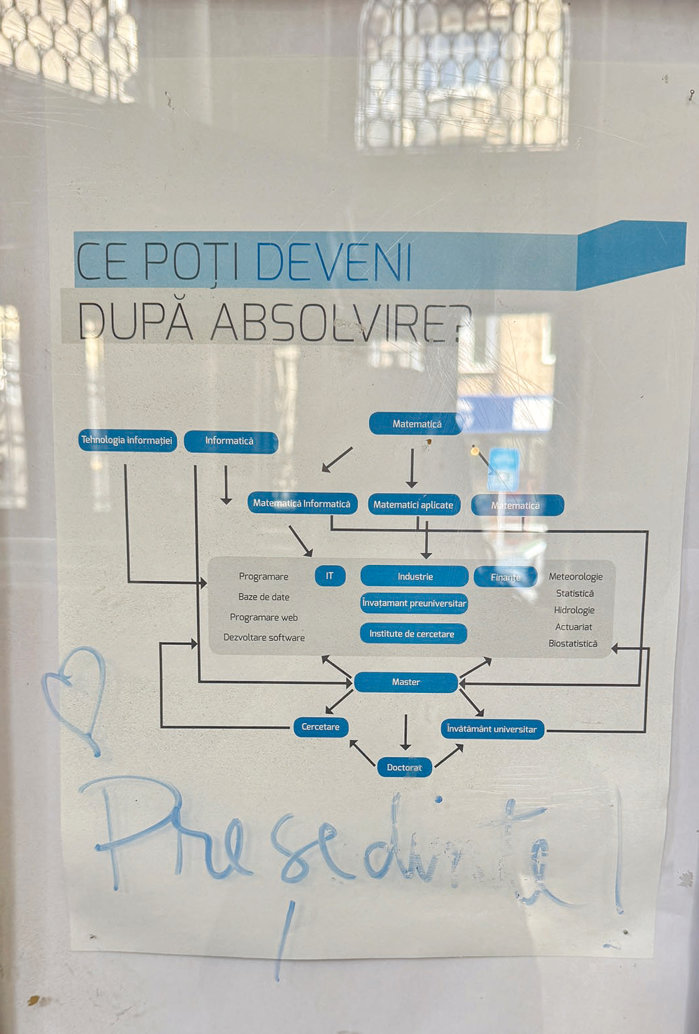 CE POȚI DEVENI
DUPĂ ABSOLVIRE?
Matematică
Tehnologia informației
Informatică
Matematică Informatică
Matematici aplicate
Matematică
Programare
IT
Industrie
Finanțe
Meteorologie
Baze de date
Învațamant preuniversitar
Statistică
Programare web
Hidrologie
Dezvoltare software
Institute de cercetare
Actuariat
Biostatistică
Master
Cercetare
Învătământ universitar
Doctorat
Președinte!